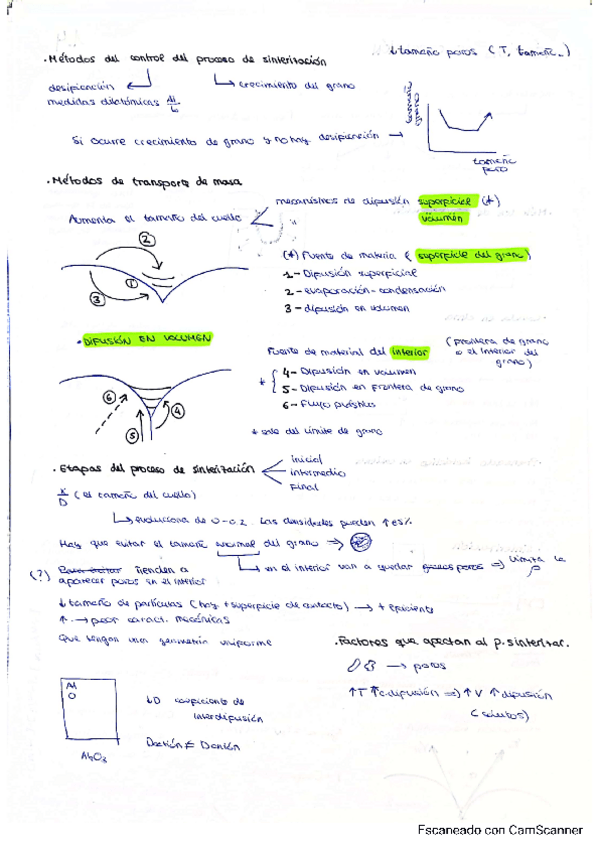 ↓ tamaño poros (T, tamañ_)
· Métodos del control del proceso de sinterización
desificación ↵ ↳ crecimiento del grano
medidas dilatómicas Δl/l₀
tamaño grano
Si ocurre crecimiento de grano y no hay desificación →
tamaño poro
· Métodos de transporte de masa
mecanismos de difusión superficial (*)
Aumenta el tamaño del cuello < " volumen
(*) Fuente de materia ( superficie del grano )
1 - Difusión superficial
2 - evaporación-condensación
3 - difusión en volumen
② ① ③
· DIFUSIÓN EN VOLUMEN
Fuente de material del interior (frontera de grano o el interior del grano)
* 4 - Difusión en volumen
5 - Difusión en frontera de grano
6 - Flujo plástico
⑥ ④ ⑤
* del límite de grano
· Etapas del proceso de sinterización
inicial
intermedio
Final
x/D ( el tamaño del cuello)
↳ evoluciona de 0-0.2. Las densidades pueden ↑ es%
Hay que evitar el tamaño anormal del grano ⇒
(?) Tienden a aparecer poros en el interior
↳ en el interior van a quedar poros ⇒ limita la ρ
↓ tamaño de partículas (hay + superficie de contacto) → + eficiente
↑ . → peor caract. mecánicas
Que tengan una geometría uniforme
· Factores que afectan al p. sinterizar.
→ poros
↑T ↑c.difusión ⇒ ↑V ↑ difusión
(sólidos)
Al
O
↓D coeficiente de interdifusión
Dcatión ≠ Danión
Al₂O₃
Escaneado con CamScanner